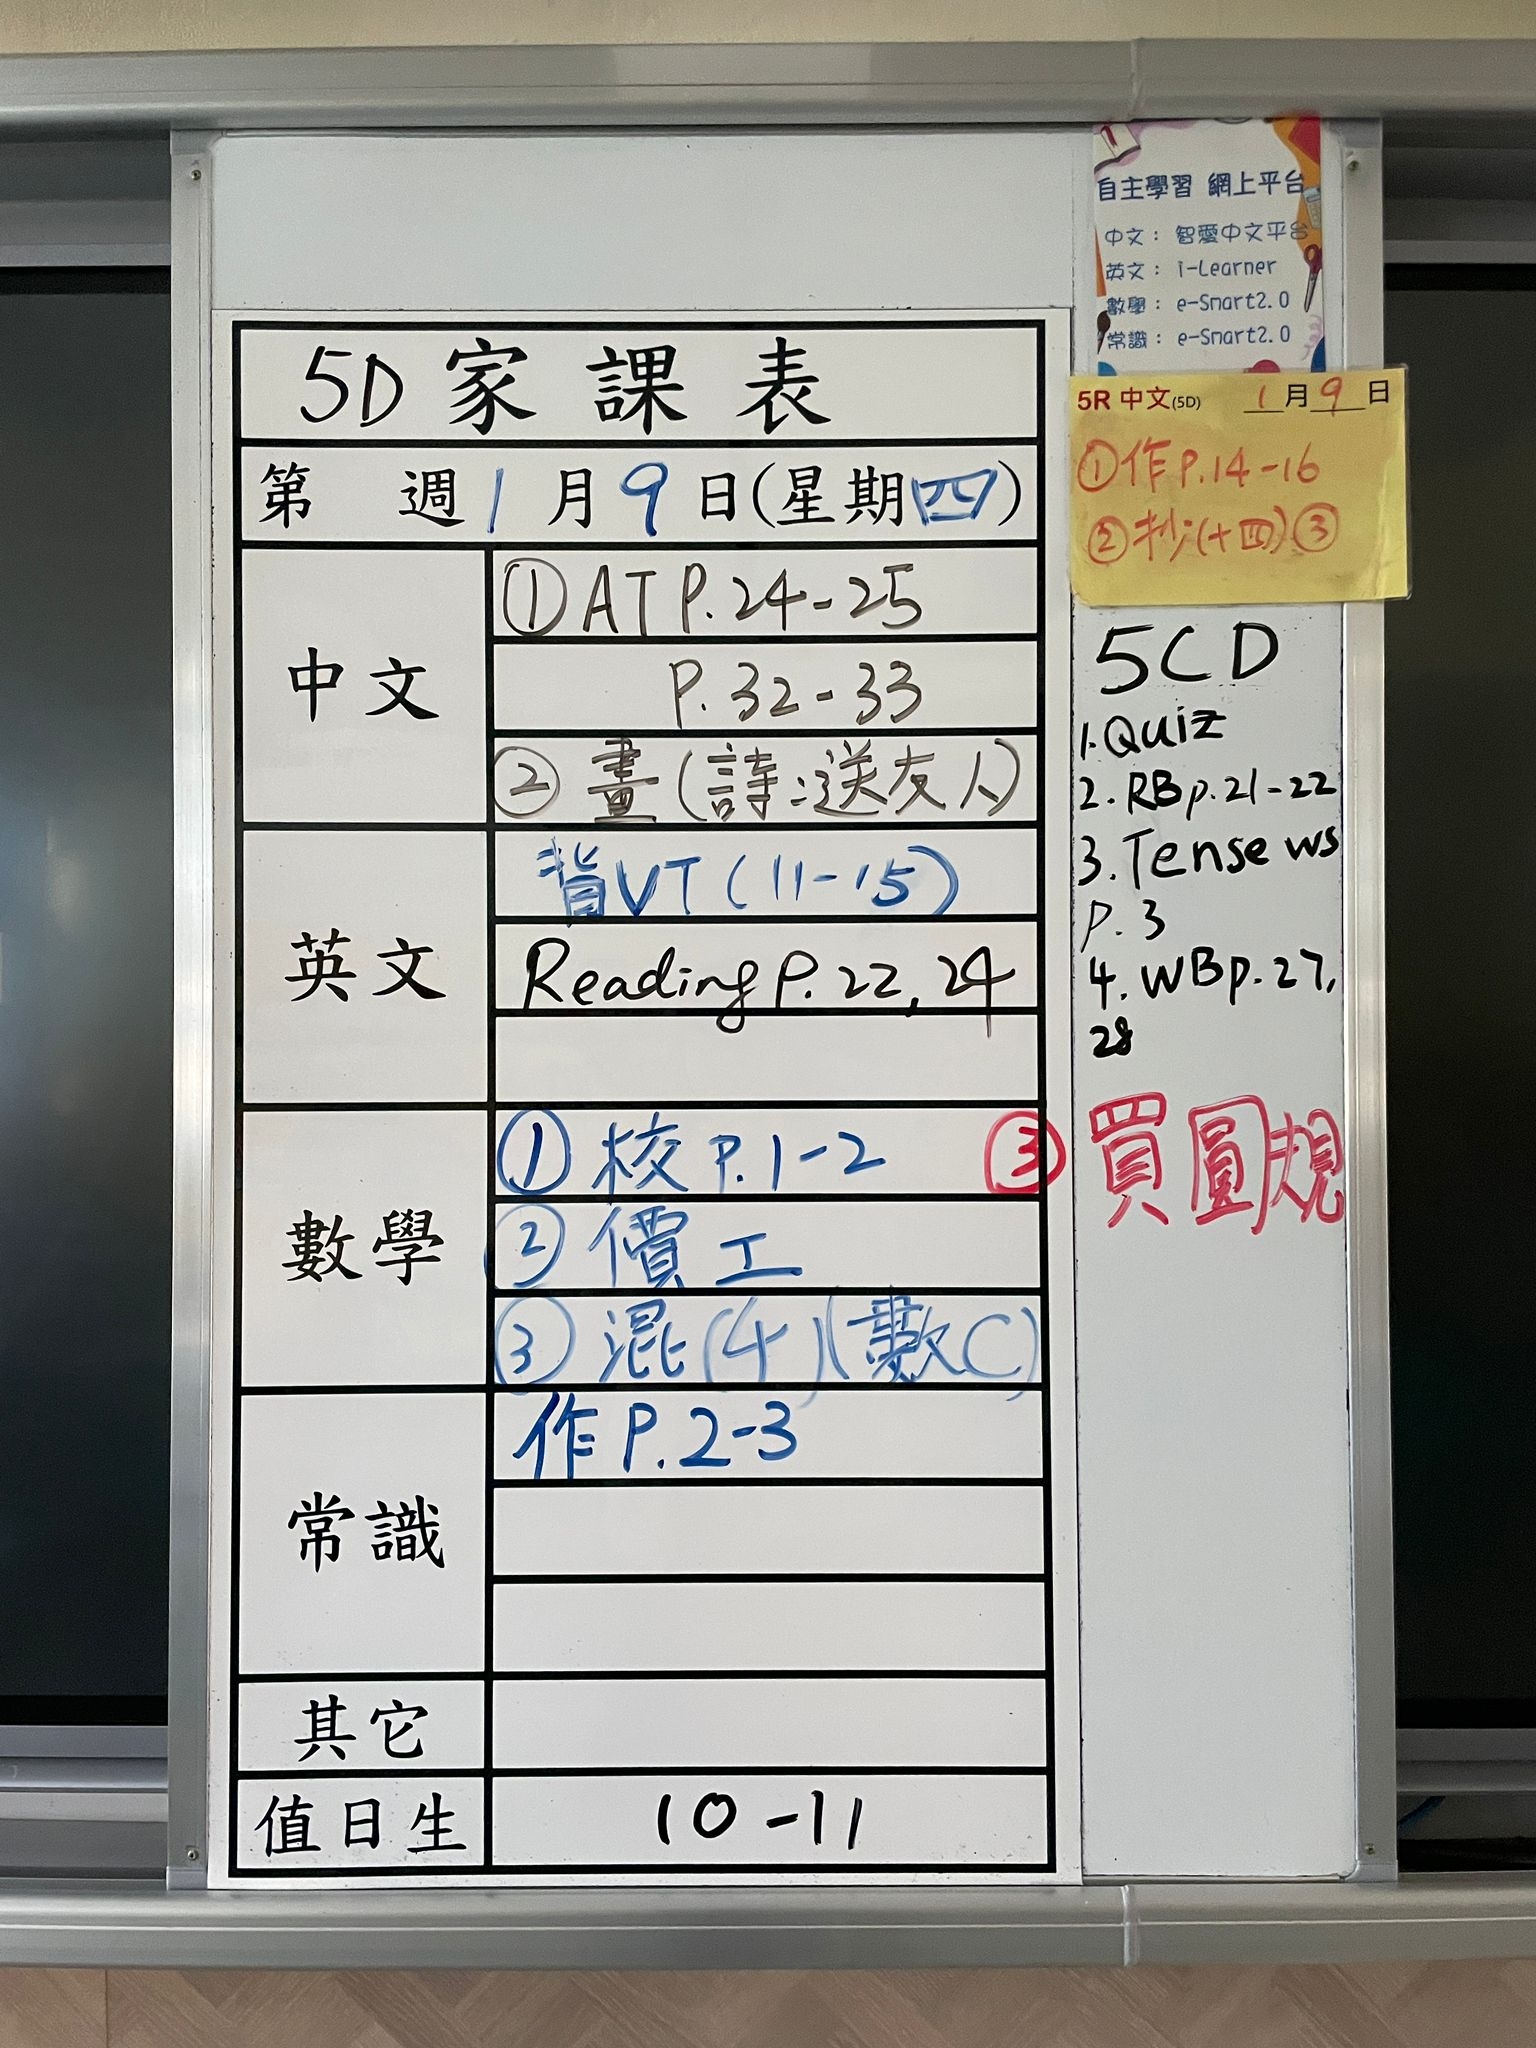 自主學習 網上平台
中文： 智愛中文平台
英文： i-Learner
數學： e-Smart2.0
常識： e-Smart2.0
5R 中文(5D) 1月9日
①作P.14-16
②抄(十四)③
5D 家課表
第 週 1月9日(星期四)
中文
①ATP.24-25
P.32-33
②畫(詩:送友人)
英文
背VT(11-15)
Reading P.22,24
數學
①校P.1-2
②價工
③混(4)(數C)
常識
作P.2-3
其它
值日生
10-11
5CD
1.Quiz
2.RBp.21-22
3.Tense ws
P.3
4.WBp.27,
28
③買圓規